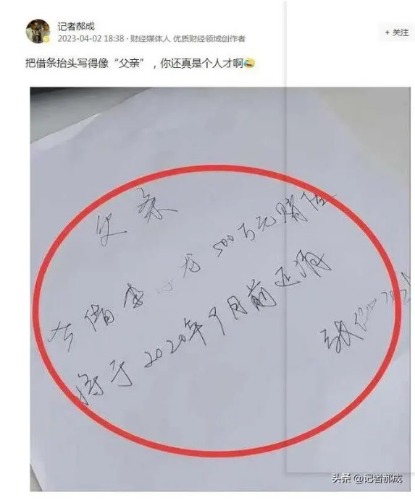 记者郝成
2023-04-02 18:38 · 财经媒体人 优质财经领域创作者
+ 关注
把借条抬头写得像“父亲”，你还真是个人才啊😂
父亲
借李 龙500万元赌
将于2020年9月前还清
张
头条@记者郝成